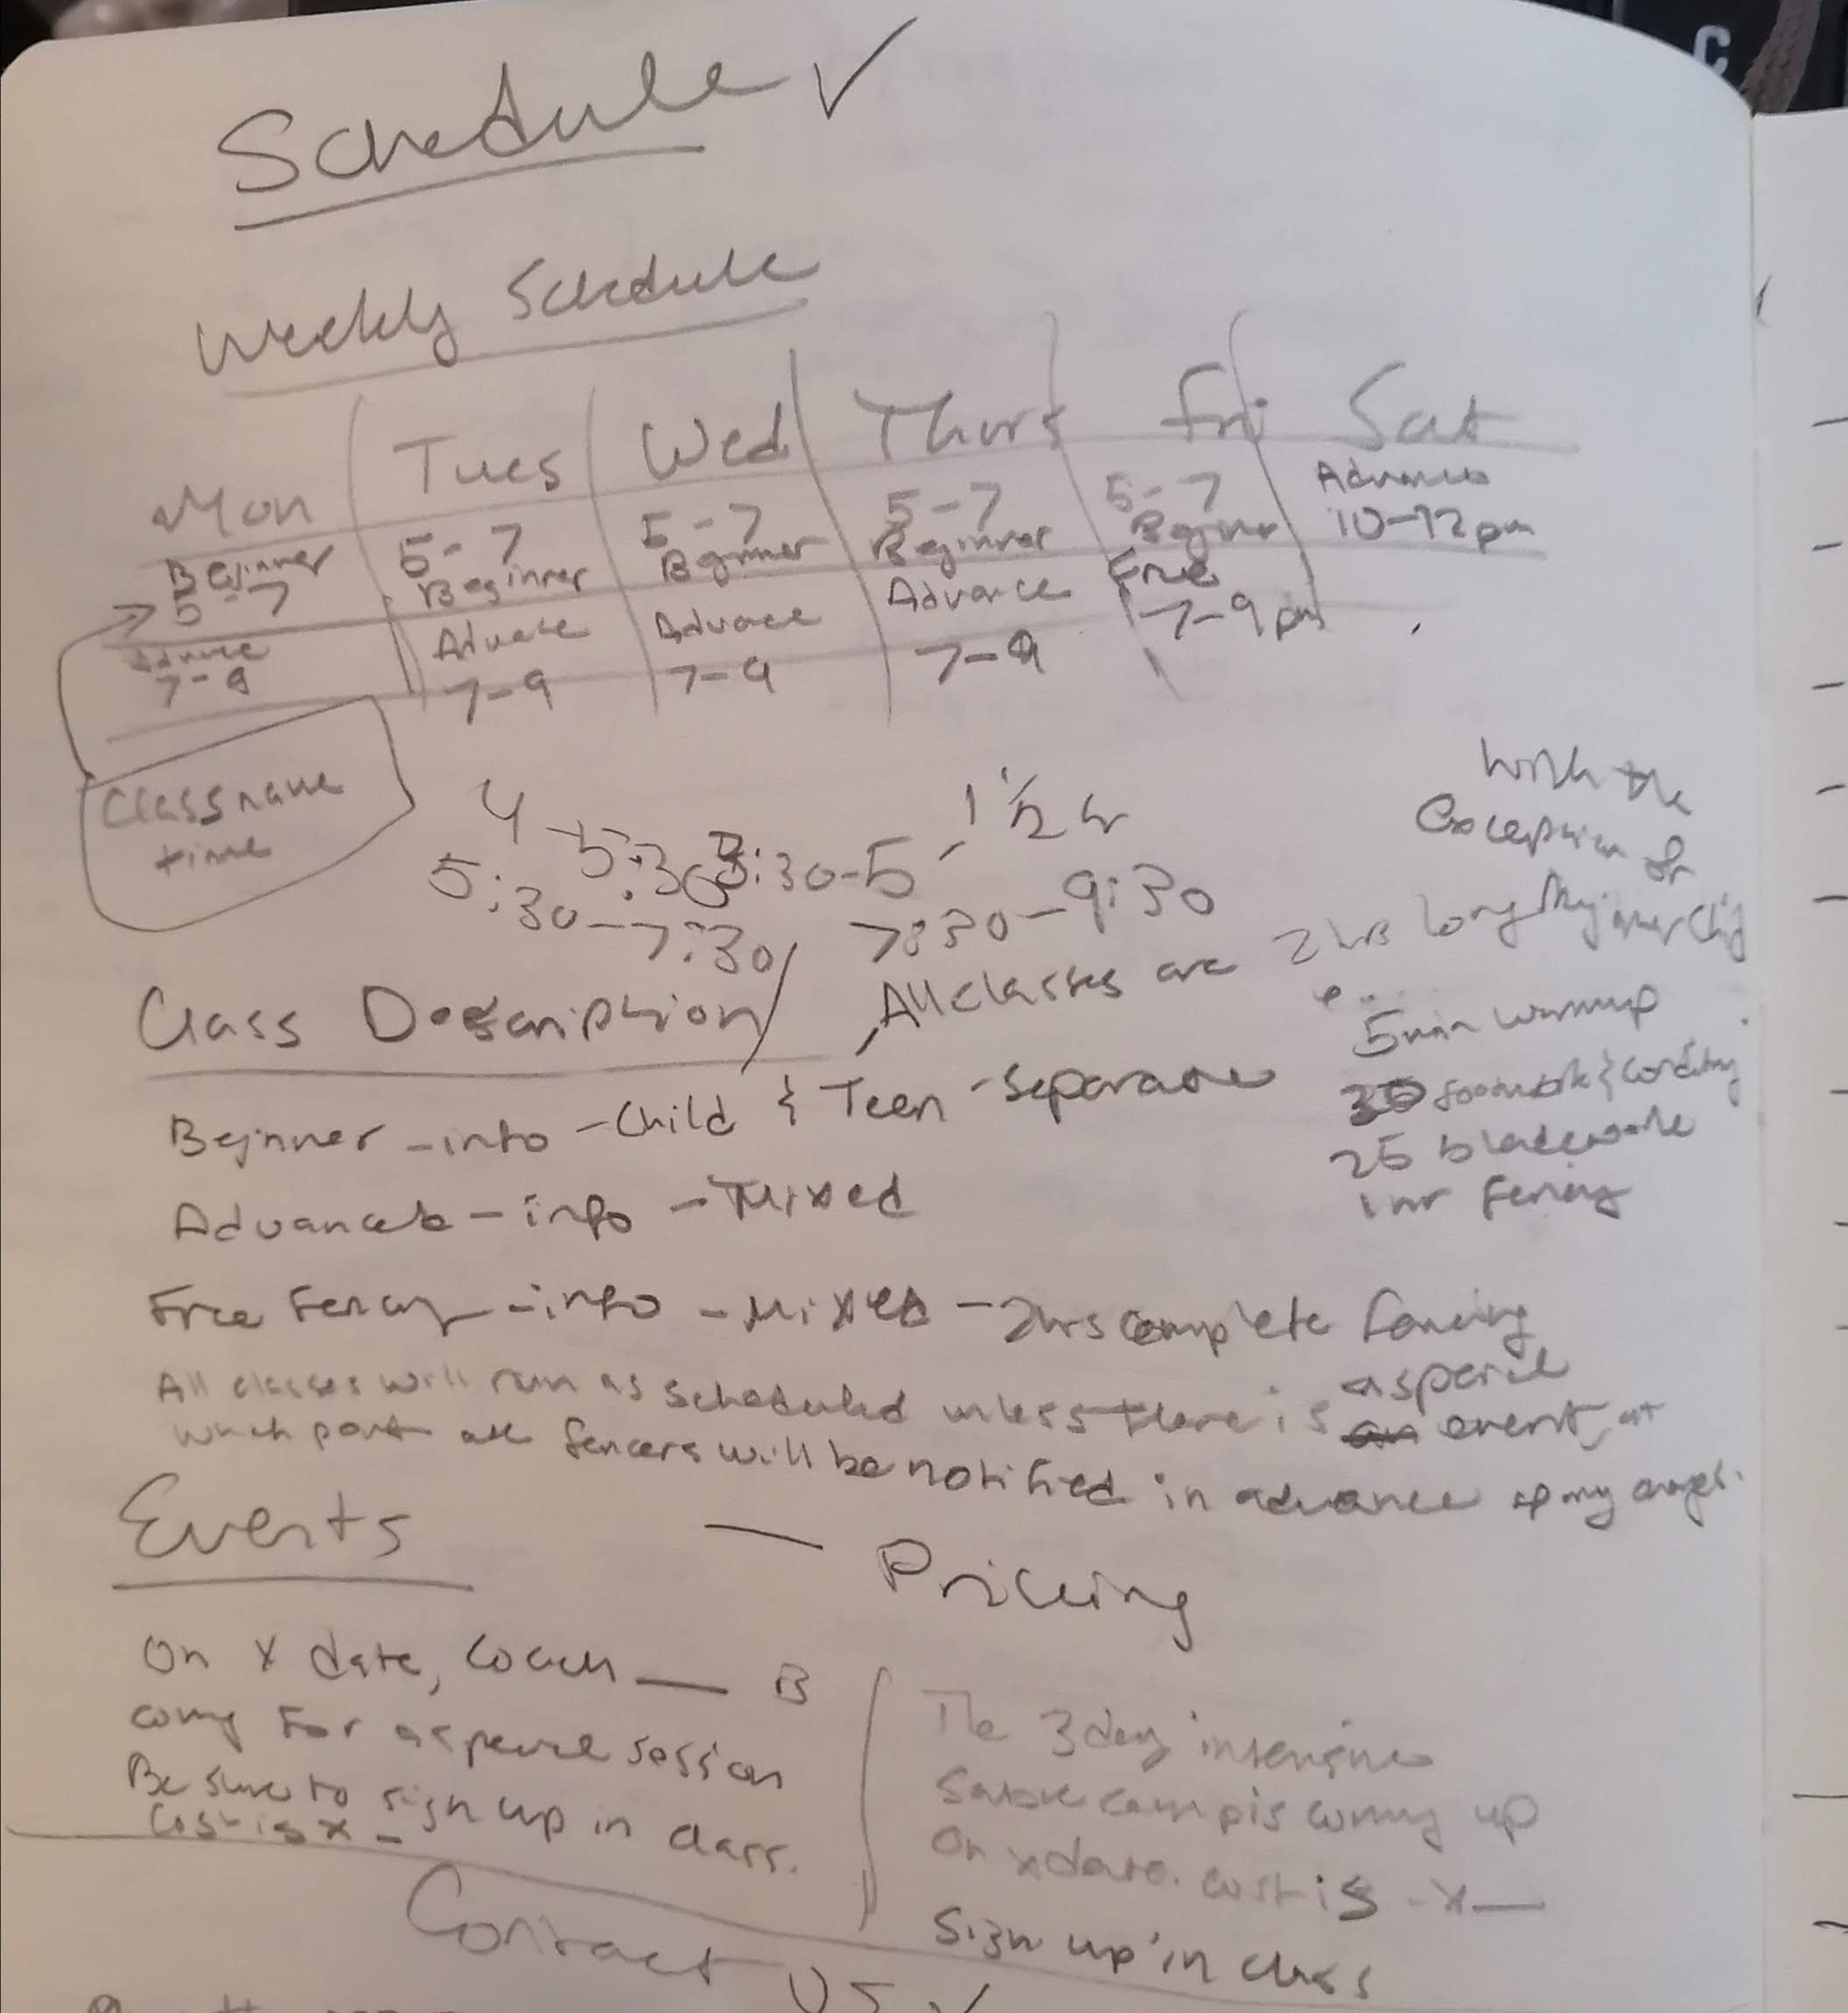 Schedule ✓
Weekly Schedule
Mon Tues Wed Thurs Fri Sat
Beginner 5-7 5-7 5-7 5-7 Advance
5-7 Beginner Beginner Beginner Beginner 10-12pm
Advance Advance Advance Advance Free
7-9 7-9 7-9 7-9 7-9pm
Class name
time
4-5:30 3:30-5 - 1 1/2 hr
5:30-7:30 / 7:30-9:30
with the
exception of
Class Description / All classes are 2 hrs long
5min warmup
Beginner - into - Child & Teen - separate
30 footwork &
25 bladework
1 hr Fencing
Advance - info - Mixed
Free Fencing - info - Mixed - 2hrs complete fencing
All classes will run as scheduled unless there is an a special event, at
which point all fencers will be notified in advance of any changes.
Events
— Pricing
On X date, Coach ___ is
coming For a special session
Be sure to sign up in class.
Cost is X -
The 3 day intensive
Sabre camp is coming up
On x date. cost is - X —
Sign up in class
Contact US ✓